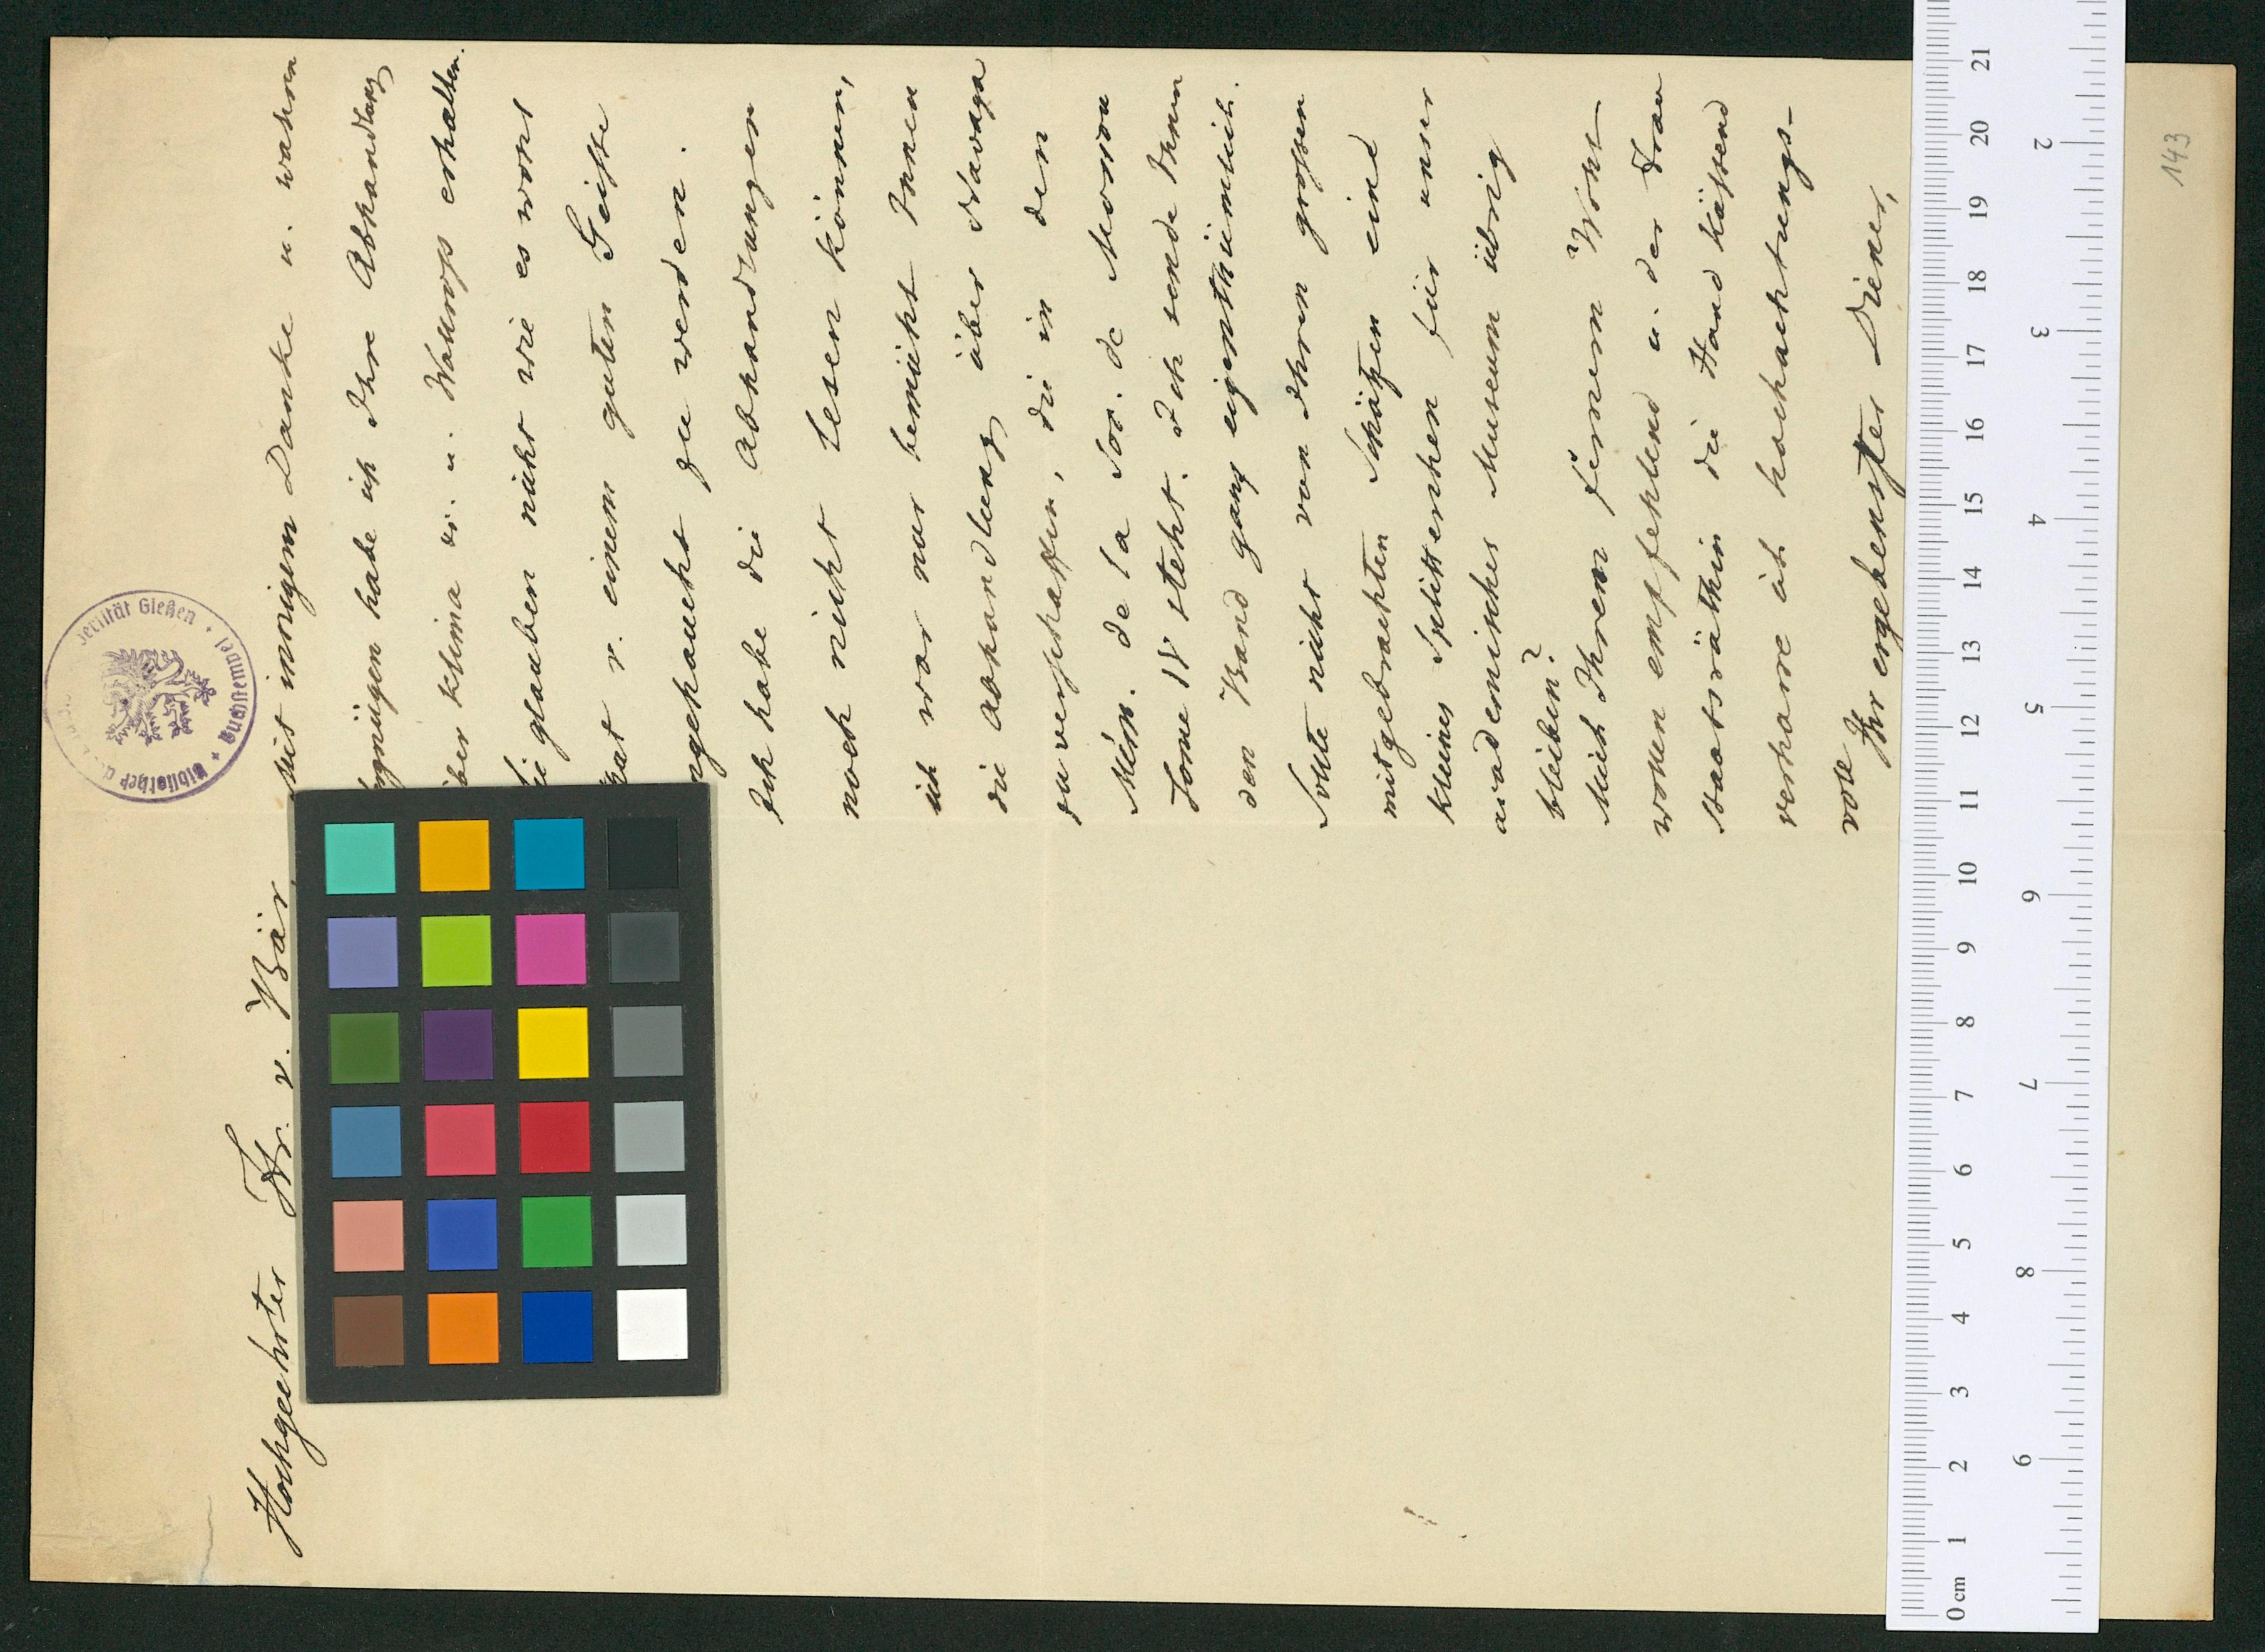 143
Hochgeehrter Hr. v. Bär,
Mit innigem Danke u. wahrem
Vergnügen habe ich Ihre Abhandlung
über Klima u. Wallross erhalten.
Sie glauben nicht wie es wohl
that v. einem guten Geiste
angehaucht zu werden.
Ich habe die Abhandlungen
noch nicht lesen können,
ich war nur bemüht Ihnen
die Abhandlung über Navaga
zu verschaffen, die in den
Mém. de la Soc. de Moscou
Tome IV steht. Ich sende Ihnen
den Band ganz eigenthümlich.
Sollte nicht von Ihren großen
mitgebrachten Schätzen eine
kleines Splitterchen für unser
academisches Museum übrig
bleiben?
Mich Ihrem Wohl-
wollen empfehlend u. der Frau
Staatsräthin die Hand küssend
verharre ich hochachtungs-
voll
Ihr ergebenster Diener,
Universität Gießen
Bibliothek
Buchstempel
0 cm 1 2 3 4 5 6 7 8 9 10 11 12 13 14 15 16 17 18 19 20 21
2 3 4 5 6 7 8 9